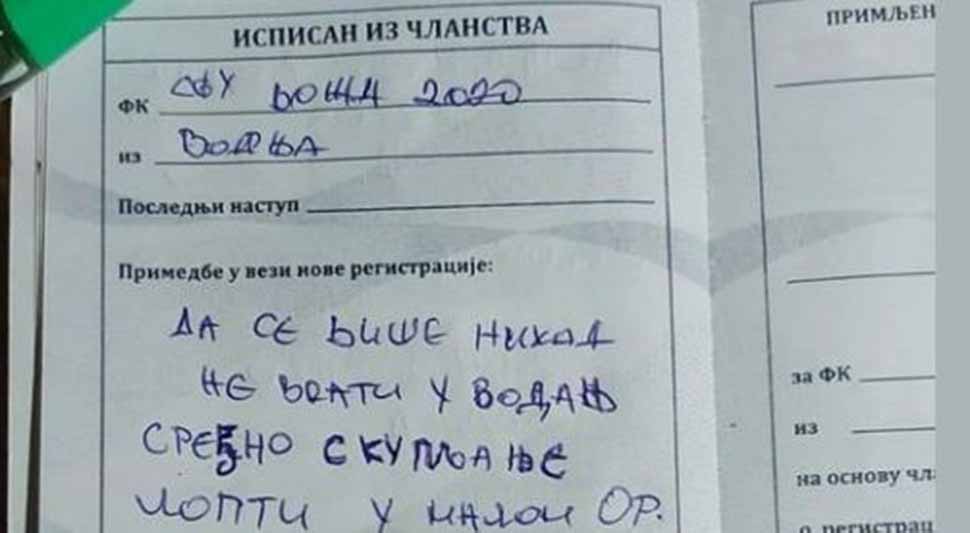 ИСПИСАН ИЗ ЧЛАНСТВА
ФК СФУ ВОЖД 2020
из Водња
Последњи наступ
Примедбе у вези нове регистрације:
ДА СЕ ВИШЕ НИКАД
НЕ ВРАТИ У ВОДАЊ
СРЕЂНО СКУПЉАЊЕ
ЛОПТИ У МАЛОМ ОР.
ПРИМЉЕН
за ФК
из
на основу чл
о регистрац